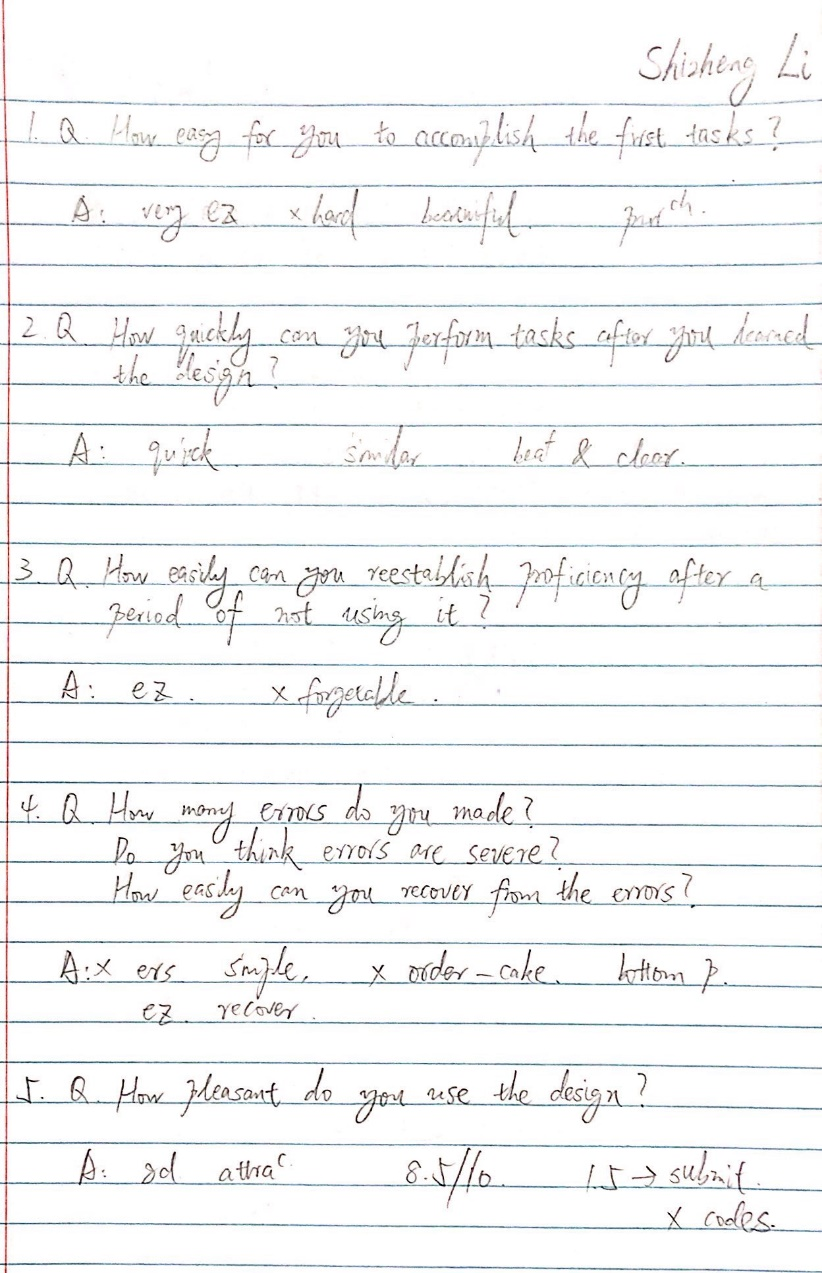 Shizheng Li
1. Q. How easy for you to accomplish the first tasks?
A: very ez x hard beautiful.
2. Q. How quickly can you perform tasks after you learned
the design?
A: quick similar & clear.
3 Q. How easily can you reestablish proficiency after a
period of not using it?
A: ez. x forgetable.
4. Q. How many errors do you made?
Do you think errors are severe?
How easily can you recover from the errors?
A: x ers simple, x order-cake. bottom p.
ez. recover.
5. Q. How pleasant do you use the design?
A: attrac 8.5/10. 1.5 → submit.
x codes.